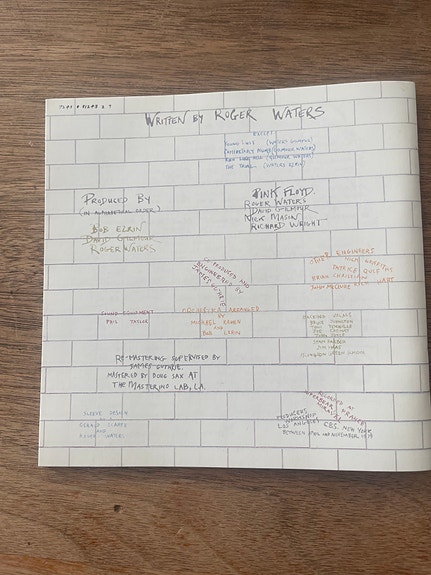 WRITTEN BY ROGER WATERS
EXCEPT
YOUNG LUST (WATERS GILMOUR)
COMFORTABLY NUMB (GILMOUR WATERS)
RUN LIKE HELL (GILMOUR WATERS)
THE TRIAL (WATERS EZRIN)
PRODUCED BY
(IN ALPHABETICAL ORDER)
BOB EZRIN
DAVID GILMOUR
ROGER WATERS
PINK FLOYD
ROGER WATERS
DAVID GILMOUR
NICK MASON
RICHARD WRIGHT
CO PRODUCED AND
ENGINEERED BY
JAMES GUTHRIE
OTHER ENGINEERS
NICK GRIFFITHS
PATRICE QUEF
BRIAN CHRISTIAN
JOHN MCCLURE RICK HART
SOUND EQUIPMENT
PHIL TAYLOR
ORCHESTRA ARRANGED
BY
MICHAEL KAMEN
AND
BOB EZRIN
BACKING VOCALS
BRUCE JOHNSTON
TONI TENNILLE
JOE CHEMAY
STAN FARBER
JIM HAAS
ISLINGTON GREEN SCHOOL
RE-MASTERING SUPERVISED BY
JAMES GUTHRIE
MASTERED BY DOUG SAX AT
THE MASTERING LAB, LA.
SLEEVE DESIGN
GERALD SCARFE
AND
ROGER WATERS
RECORDED AT
SUPERBEAR FRANCE
MIRAVAL
PRODUCERS
WORKSHOP
LOS ANGELES
CBS. NEW YORK
BETWEEN APRIL AND NOVEMBER 1979